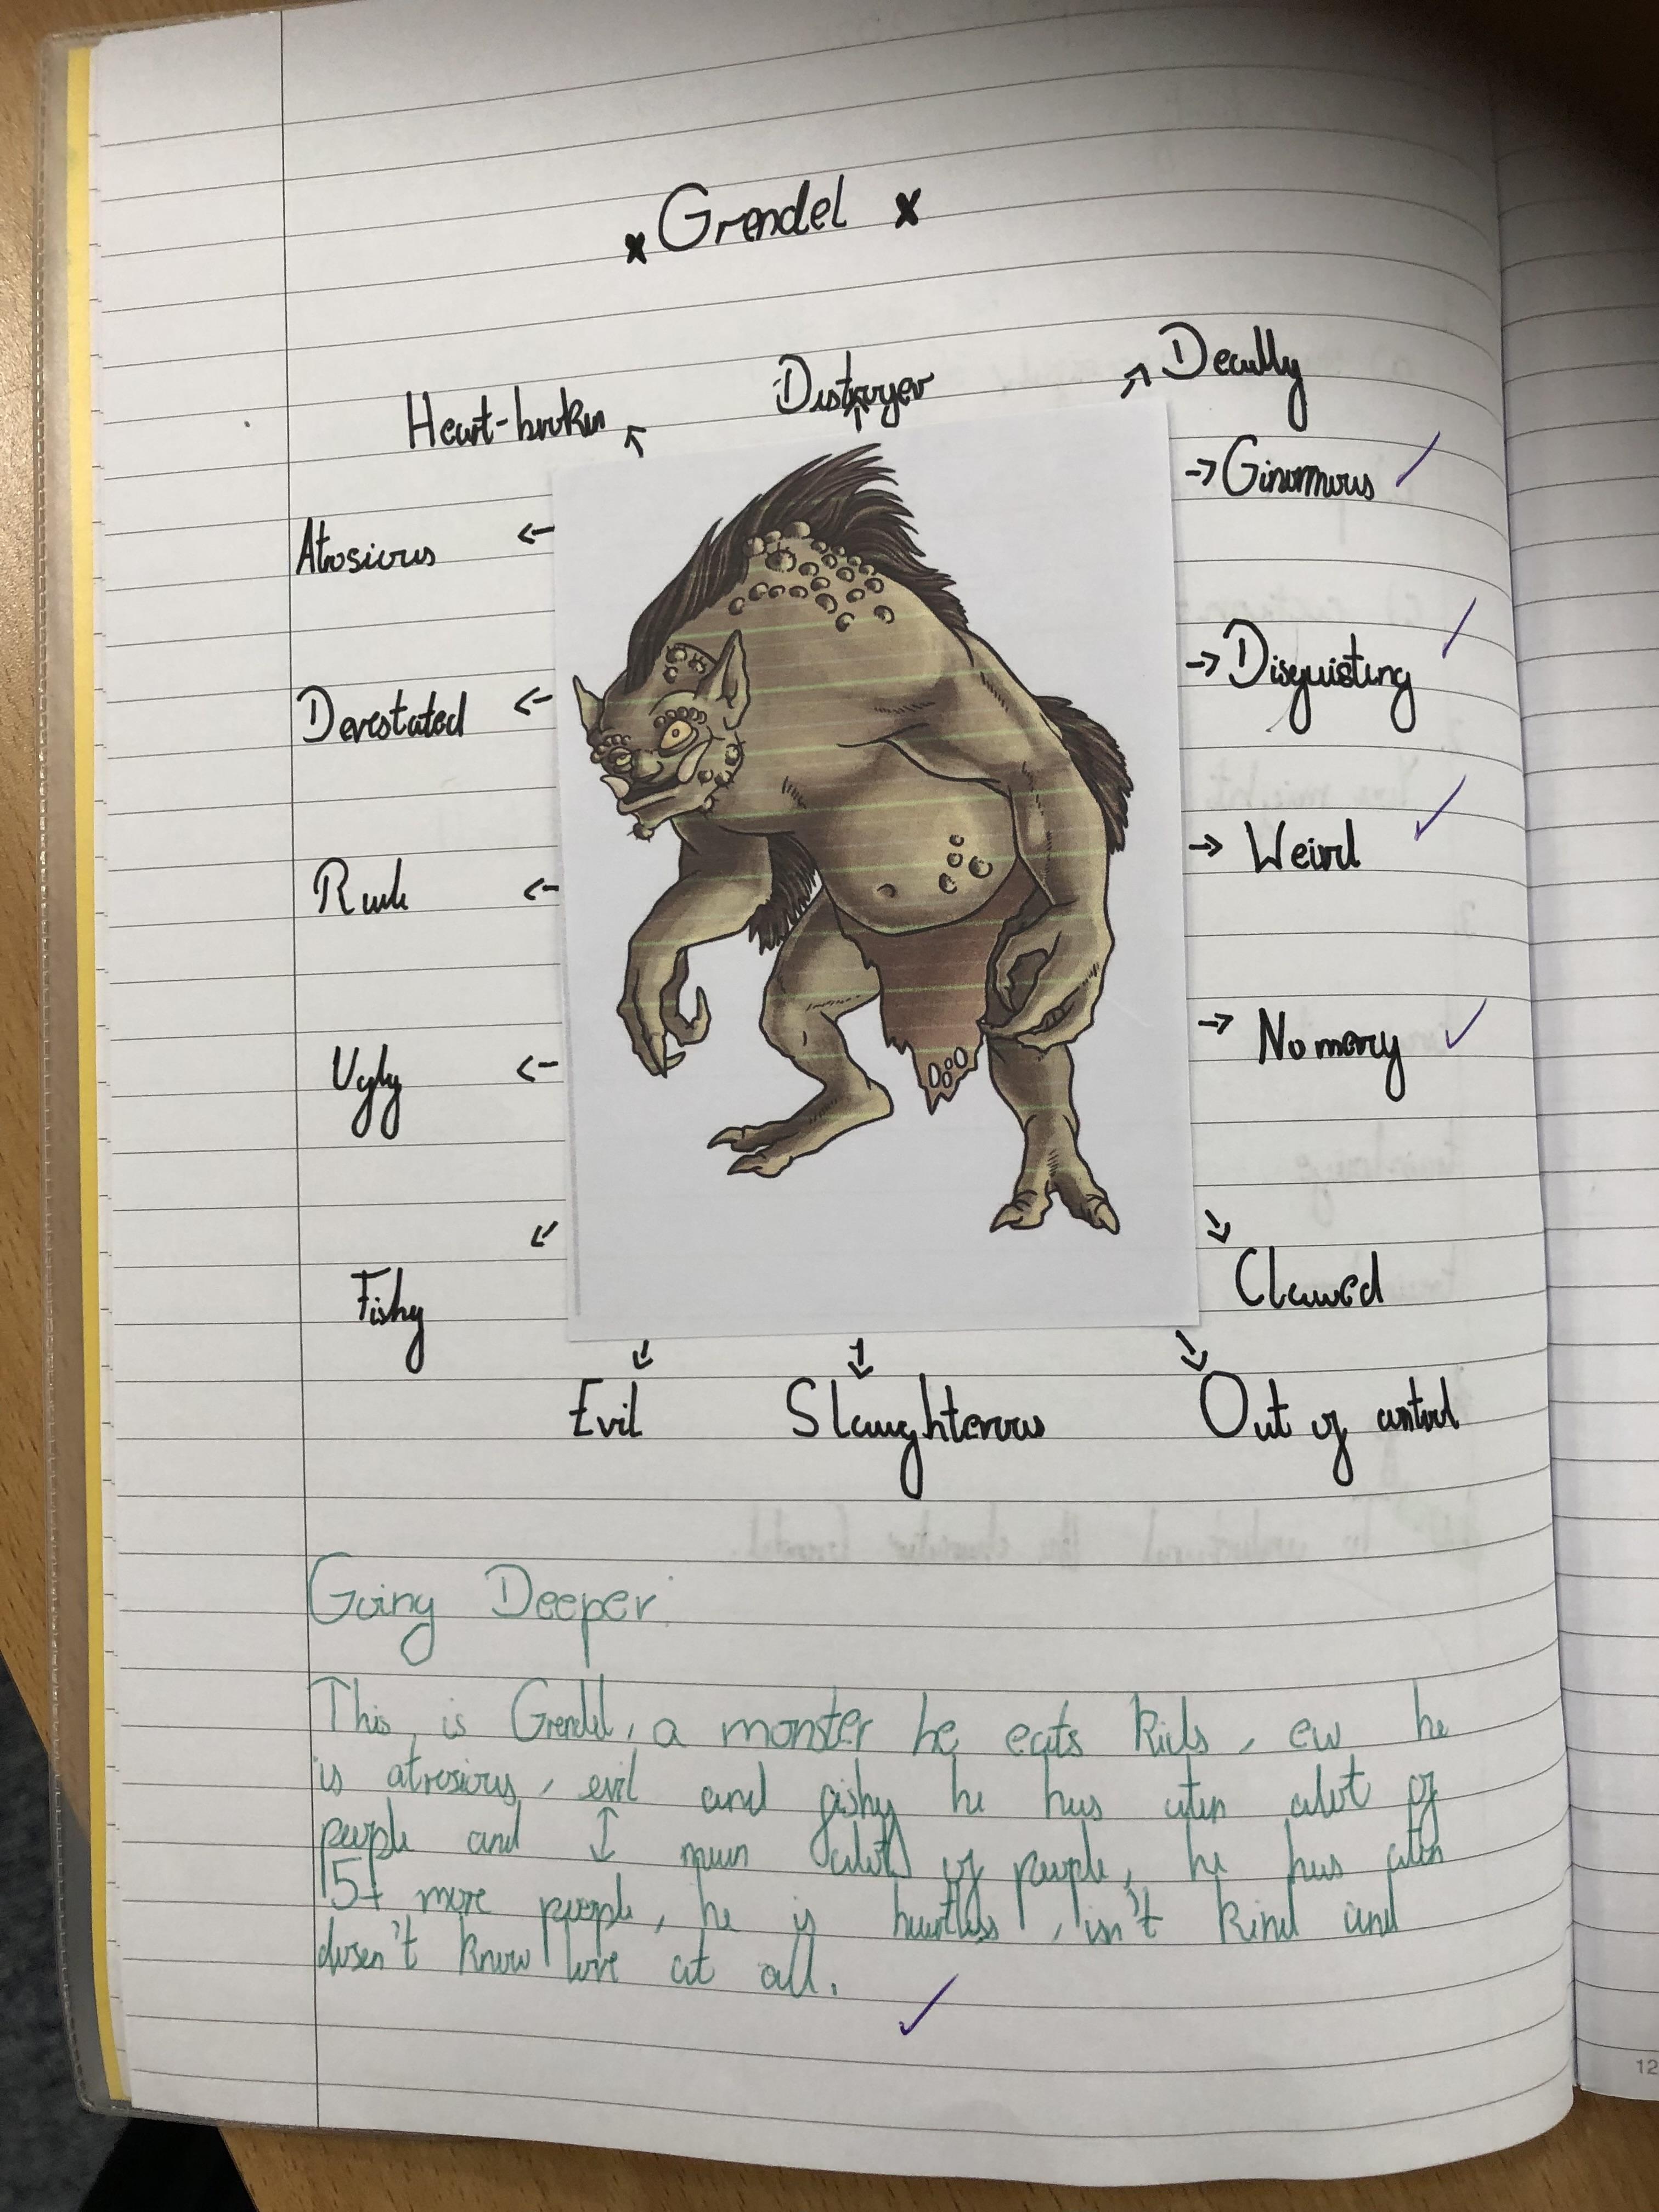 Grendel
Heart-broken
Distroyer
Deadly
Ginormous
Atrosious
Disguisting
Devestated
Weird
Rude
No mercy
Ugly
Clawed
Fishy
Evil
Slaughterous
Out of control
Going Deeper
This, is Grendel, a monster he eats kids, ew he
is atrosious, evil and fishy he has eaten alot of
people and I mean alot of people, he has eaten
15+ more people, he is heartless, isn't kind and
dosen't know love at all.
12